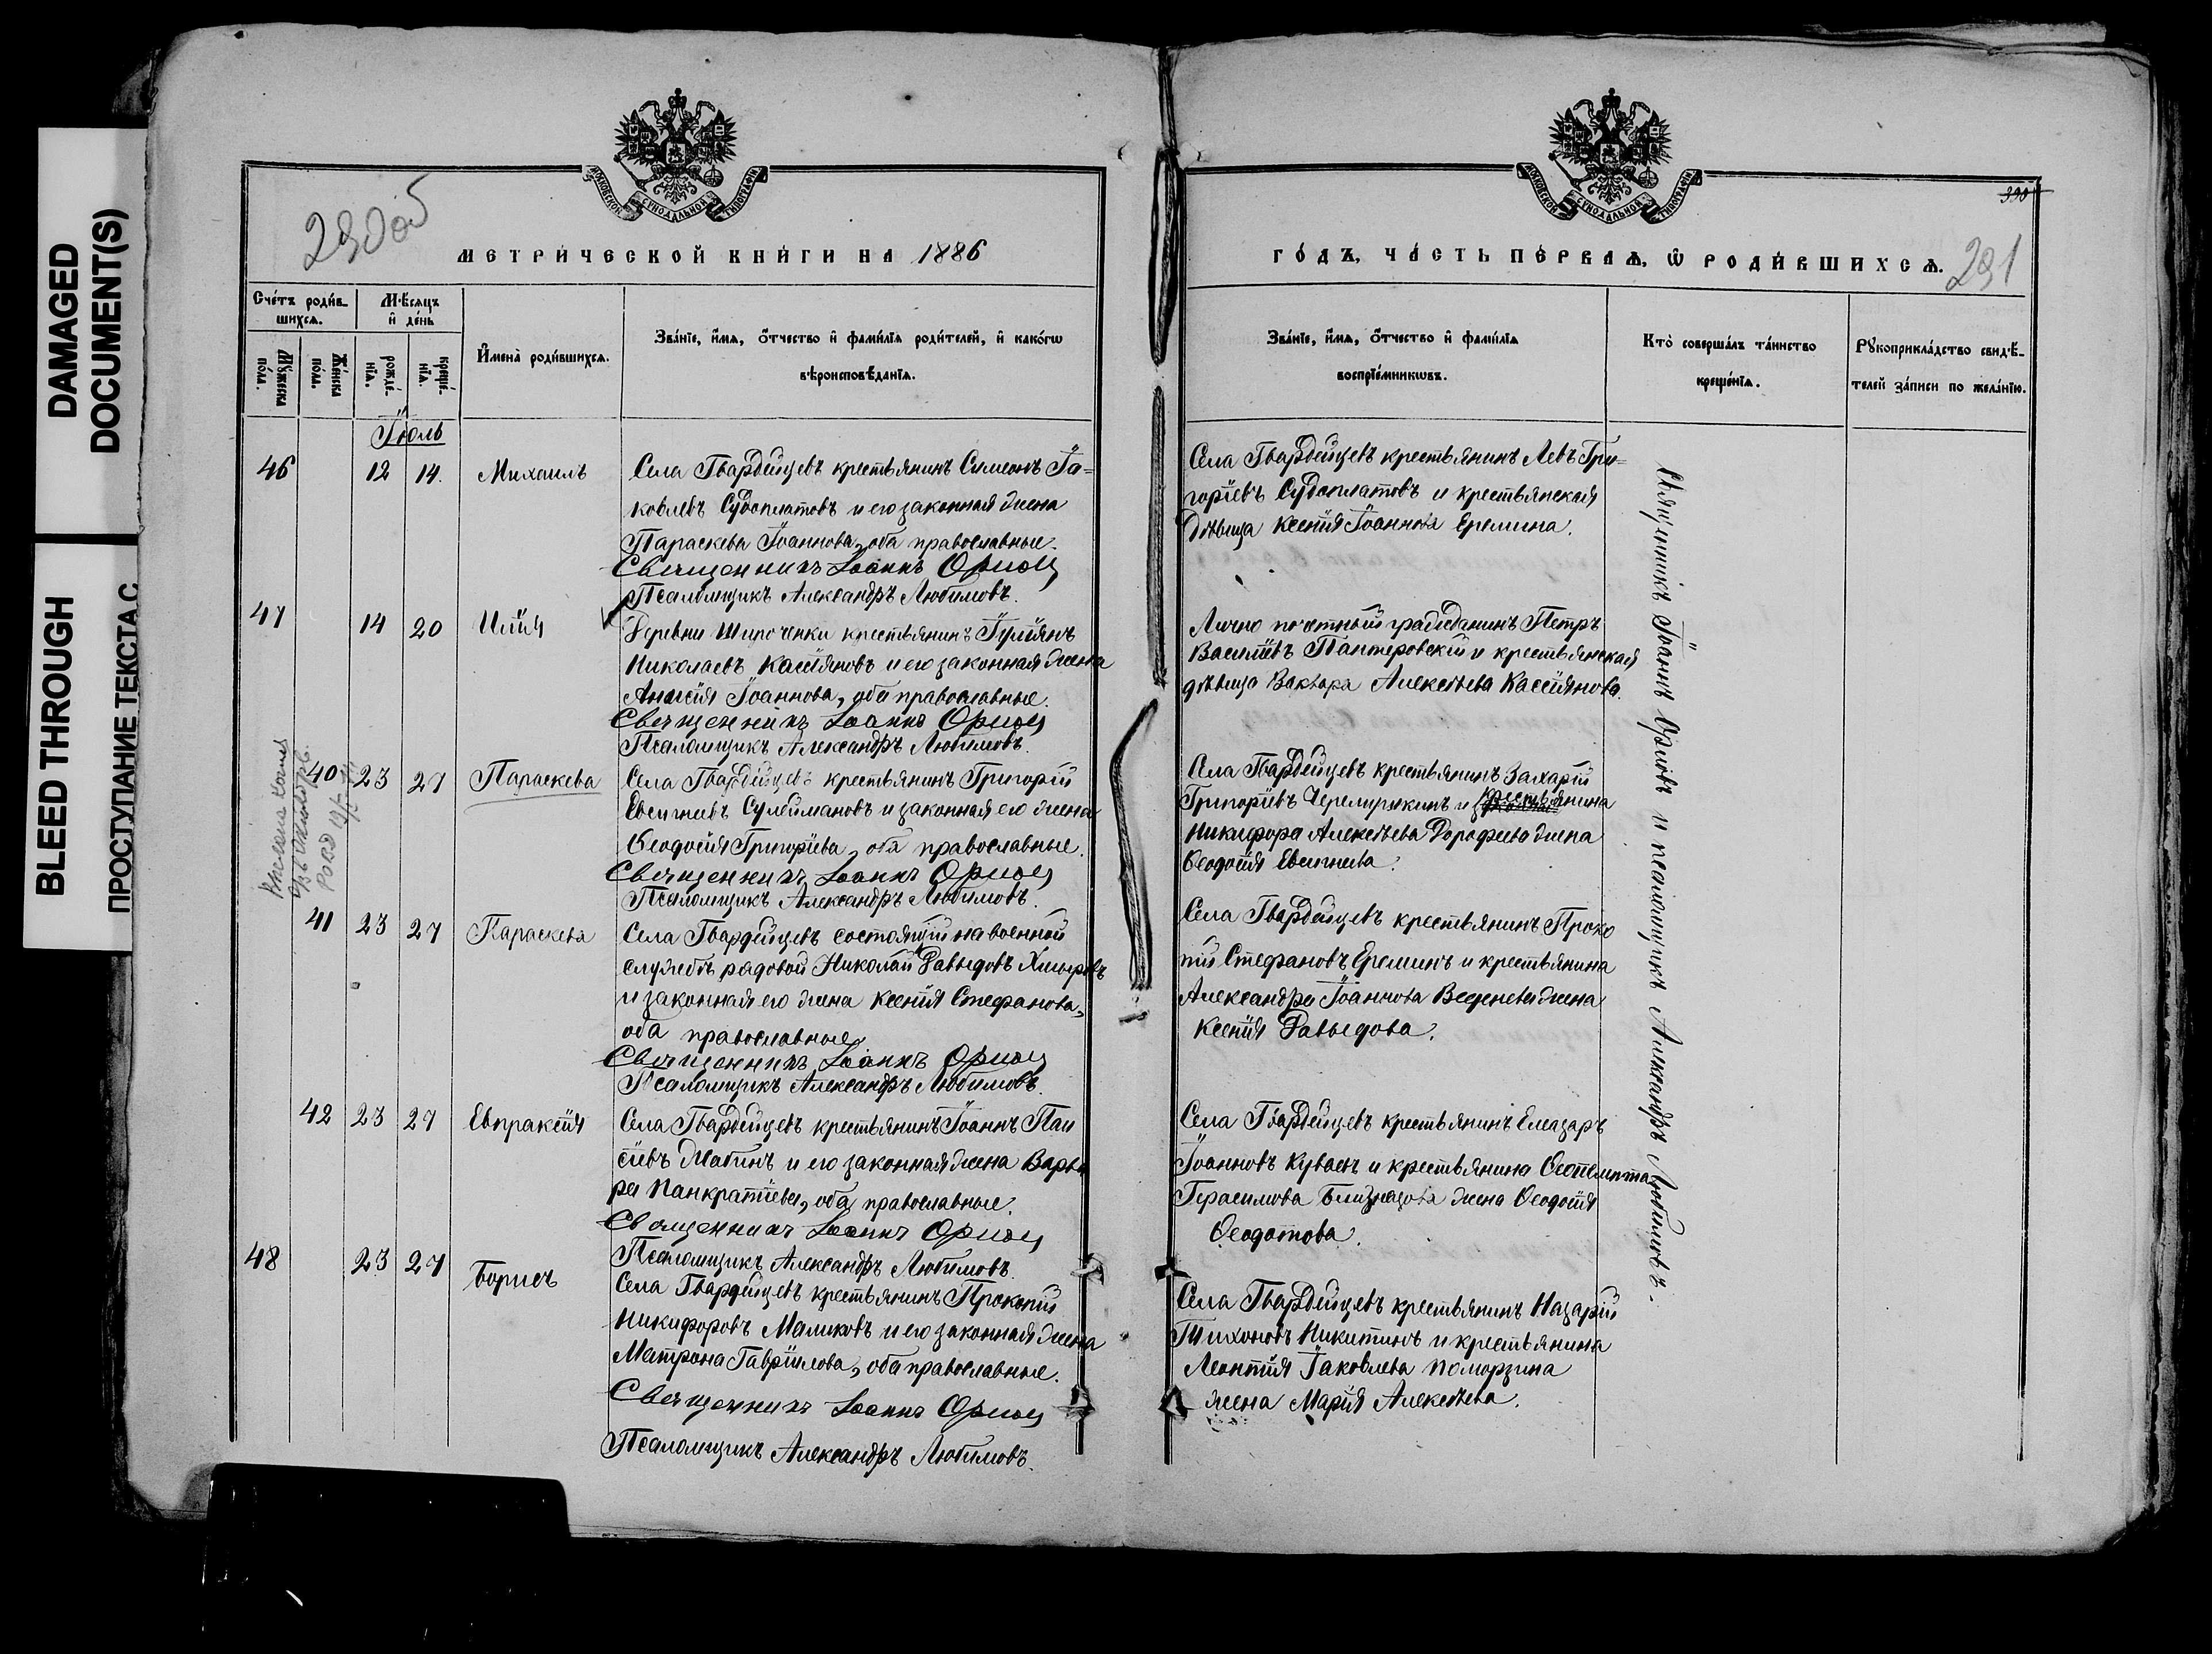 DAMAGED
DOCUMENT(S)
BLEED THROUGH
ПРОСТУПАНИЕ ТЕКСТА С
290об
МОСКОВСКОЙ СѴНОДАЛЬНОЙ ТИПОГРАФІИ
МЕТРИ́ЧЕСКОЙ КНИ́ГИ НА 1886
Сче́тъ роди́в-
шихсѧ.
Мѣ́сѧцъ
и҆ де́нь
Мꙋ́жеска
по́ла.
Же́нска
по́ла.
рожде́-
нїѧ.
креще́-
нїѧ.
И҆мена̀ роди́вшихсѧ.
Зва́нїе, и҆́мѧ, ѻ҆́тчество и҆ фами́лїѧ роди́телей, и҆ како́гѡ
вѣроисповѣ́данїѧ.
Іюль
46 12 14. Михаилъ
Села Гвардейцевъ крестьянинъ Симеонъ Іа=
ковлевъ Судоплатовъ и его законная жена
Параскева Іоаннова, оба православные.
Священникъ Іоаннъ Орлов
Псаломщикъ Александръ Любимовъ.
47 14 20 Илія
Деревни Широченки крестьянинъ Іуліянъ
Николаевъ Касіяновъ и его законная жена
Анисія Іоаннова, оба православные.
Священникъ Іоаннъ Орлов
Псаломщикъ Александръ Любимовъ.
40 23 27 Параскева
Села Гвардейцевъ крестьянинъ Григорій
Евсигніевъ Сулеймановъ и законная его жена
Ѳеодосія Григоріева, оба православные.
Священникъ Іоаннъ Орлов
Псаломщикъ Александръ Любимовъ.
41 23 27 Параскева
Села Гвардейцевъ состоящій на военной
службѣ рядовой Николай Давыдовъ Хмыровъ
и законная его жена Ксенія Стефанова,
оба православные.
Священникъ Іоаннъ Орлов
Псаломщикъ Александръ Любимовъ.
42 23 27 Евпраксія
Села Гвардейцевъ крестьянинъ Іоаннъ Паи
сіевъ и его законная жена Варва
ра Панкратіева, оба православные.
Священникъ Іоаннъ Орлов
Псаломщикъ Александръ Любимовъ.
48 23 27 Борисъ
Села Гвардейцевъ крестьянинъ Прокопій
Никифоровъ Маликовъ и его законная жена
Матрона Гавріилова, оба православные.
Священникъ Іоаннъ Орлов
Псаломщикъ Александръ Любимовъ.
390
МОСКОВСКОЙ СѴНОДАЛЬНОЙ ТИПОГРАФІИ
ГО́ДЪ, ЧА́СТЬ ПЕ́РВАѦ, Ѡ҆ РОДИ́ВШИХСѦ.
291
Зва́нїе, и҆́мѧ, ѻ҆́тчество и҆ фами́лїѧ
воспрїе́мникѡвъ.
Кто̀ соверша́лъ та́инство
креще́нїѧ.
Рꙋкоприкла́дство свидѣ́-
телей за́писи по жела́нїю.
Села Гвардейцевъ крестьянинъ Левъ Гри=
горіевъ Судоплатовъ и крестьянская
дѣвица Ксенія Іоаннова Еремина.
Лично почетный гражданинъ Петръ
Василіевъ Пантеровскій и крестьянская
дѣвица Варвара Алексѣева Кассіянова.
Села Гвардейцевъ крестьянинъ Захарій
Григоріевъ Черемушкинъ и крестьянина
Никифора Алексѣева Дорофеева жена
Ѳеодосія Евсигнева.
Села Гвардейцевъ крестьянинъ Проко
пій Стефановъ Ереминъ и крестьянина
Александра Іоаннова Веденева жена
Ксенія Давыдова.
Села Гвардейцевъ крестьянинъ Елеазаръ
Іоанновъ Куваевъ и крестьянина Ѳеопемпта
Герасимова Близнецова жена Ѳеодосія
Ѳеодотова.
Села Гвардейцевъ крестьянинъ Назарій
Тихоновъ Никитинъ и крестьянина
Леонтія Іаковлева Поморзина
жена Марія Алексѣева.
Священникъ Іоаннъ Орловъ и псаломщикъ Александръ Любимовъ.